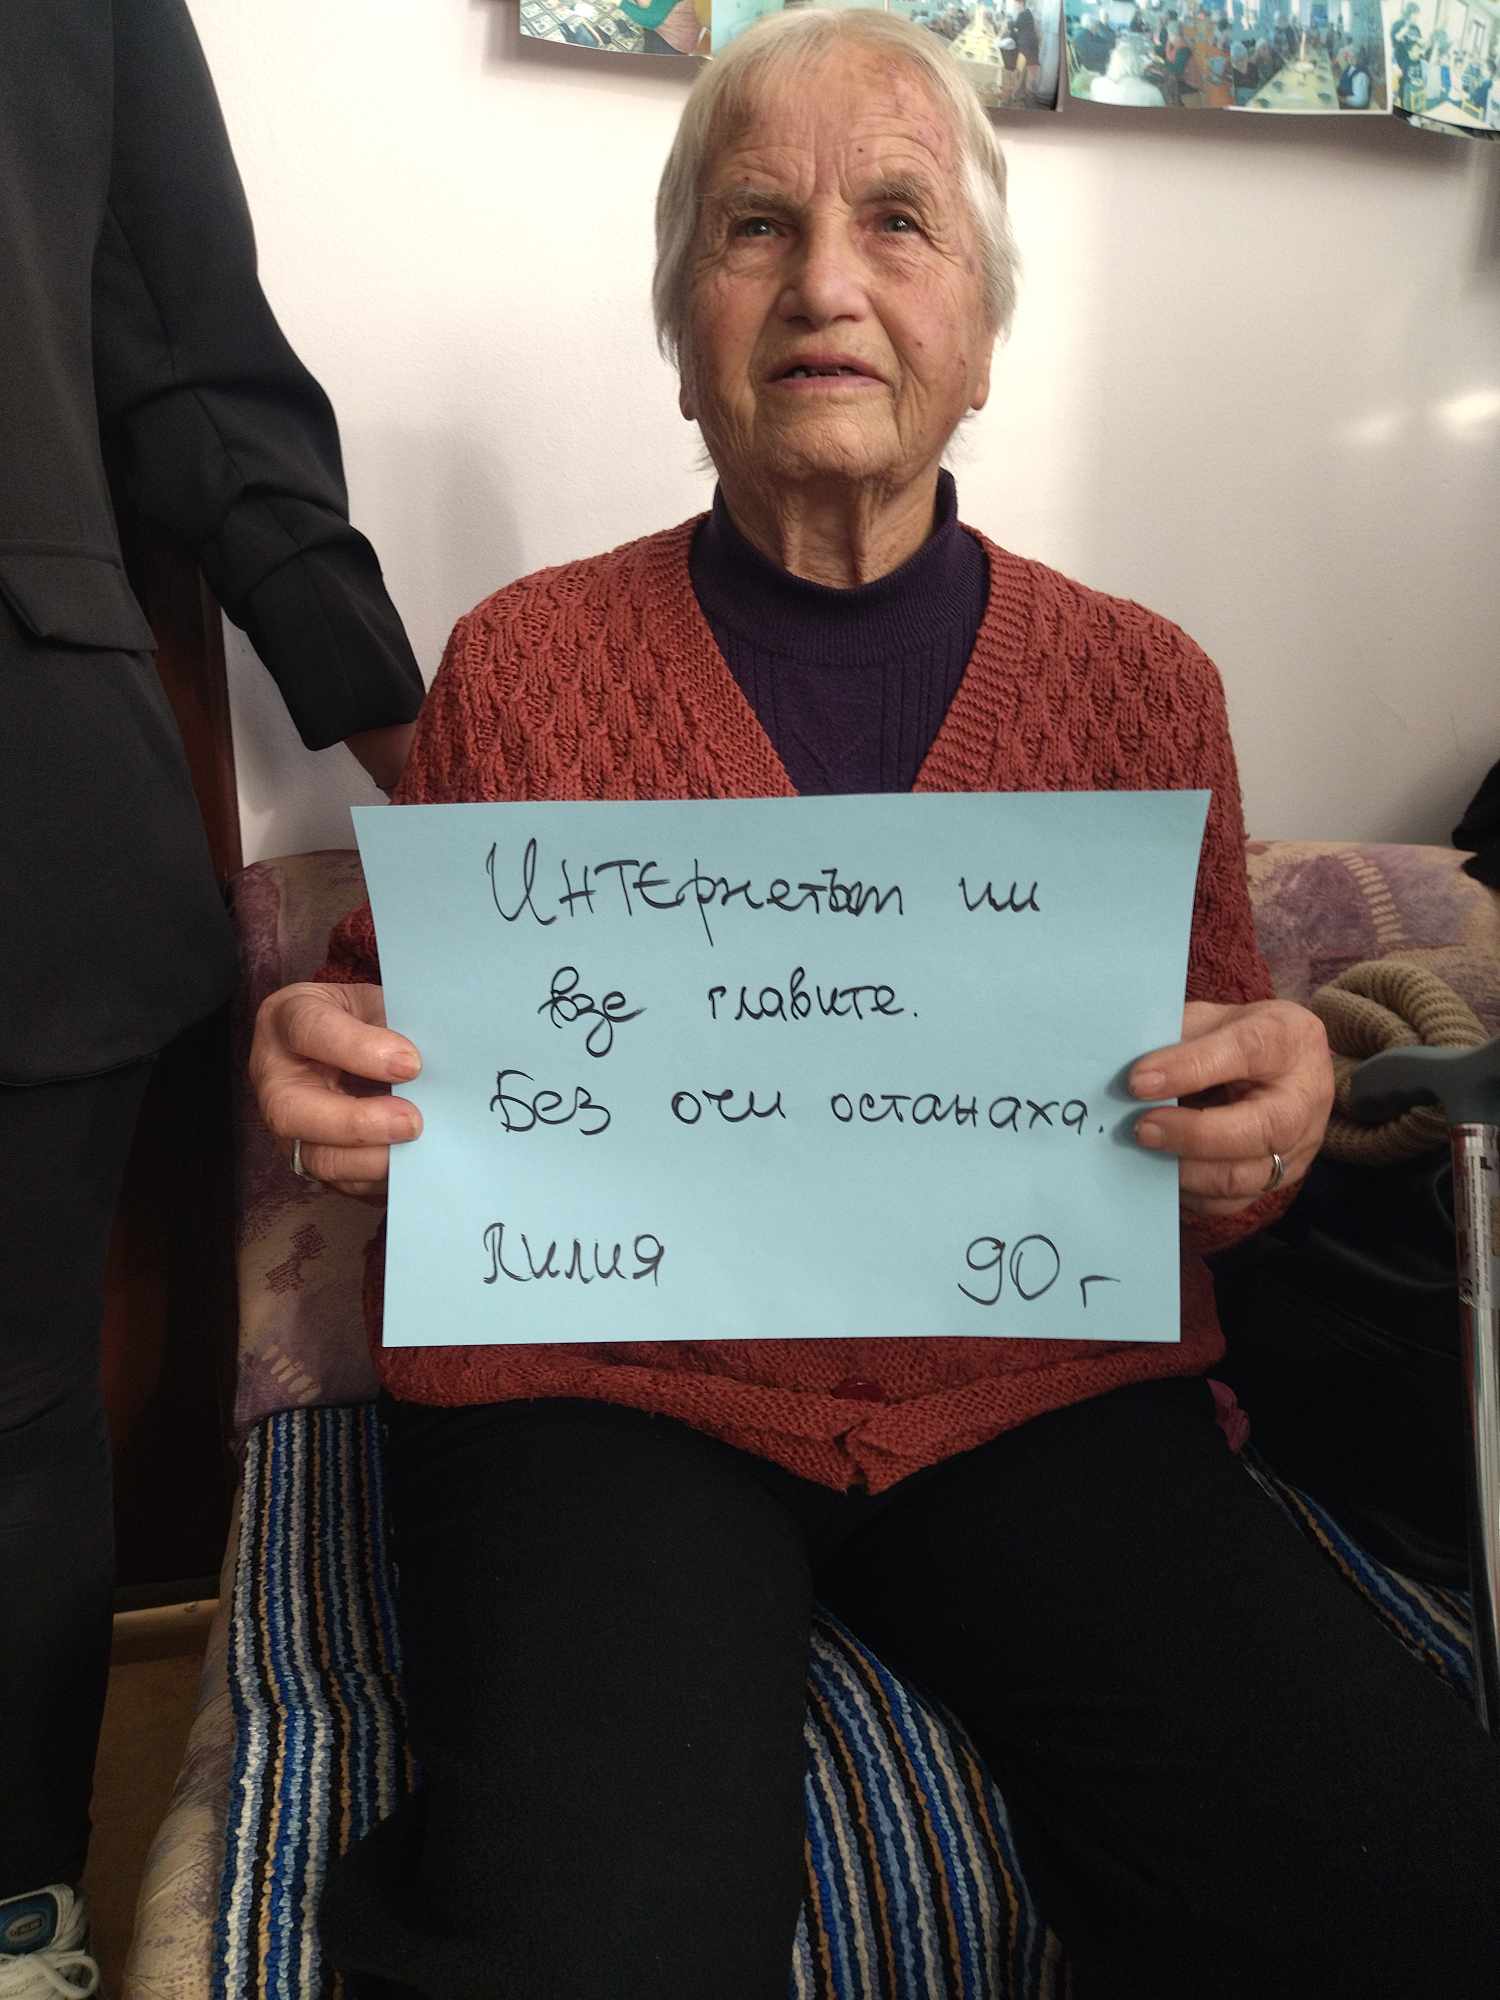 Интернетът ни
взе главите.
Без очи останаха.
Лилия 90 г